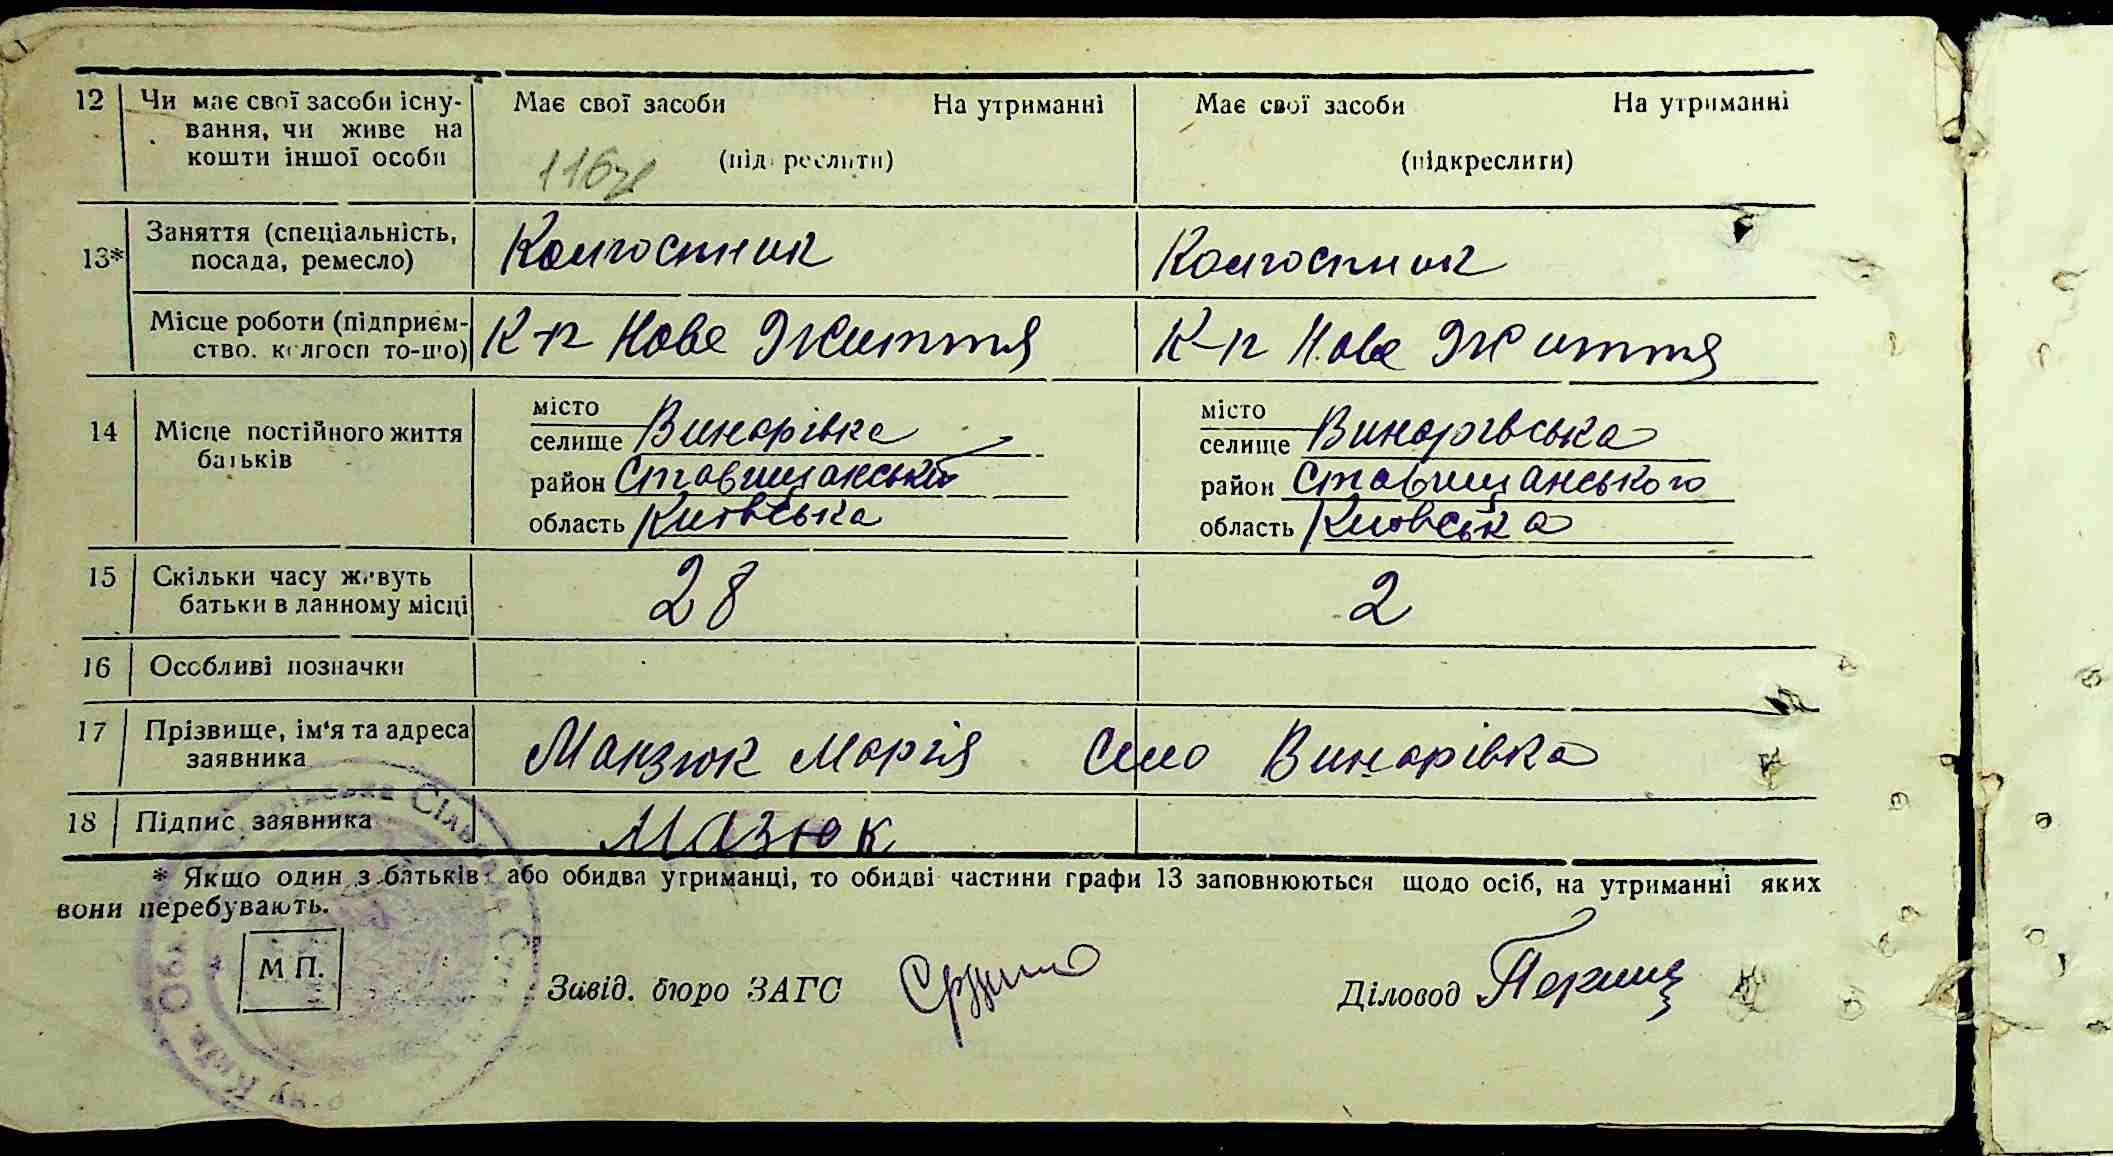 12 Чи має свої засоби існу- Має свої засоби На утриманні Має свої засоби На утриманні
вання, чи живе на
кошти іншої особи (підкреслити) (підкреслити)
116
13* Заняття (спеціальність, Колгоспник Колгоспник
посада, ремесло)
Місце роботи (підприєм- К-п Нове Життя К-п Нове Життя
ство, колгосп то-що)
14 Місце постійного життя місто місто
батьків селище Винарівка селище Винарівська
район Ставищанський район Ставищанського
область Київська область Київська
15 Скільки часу живуть 28 2
батьки в данному місці
16 Особливі позначки
17 Прізвище, ім'я та адреса Манзюк Марія Село Винарівка
заявника
18 Підпис заявника Мазюк
* Якщо один з батьків або обидва утриманці, то обидві частини графи 13 заповнюються щодо осіб, на утриманні яких
вони перебувають.
М П.
Завід. бюро ЗАГС Діловод